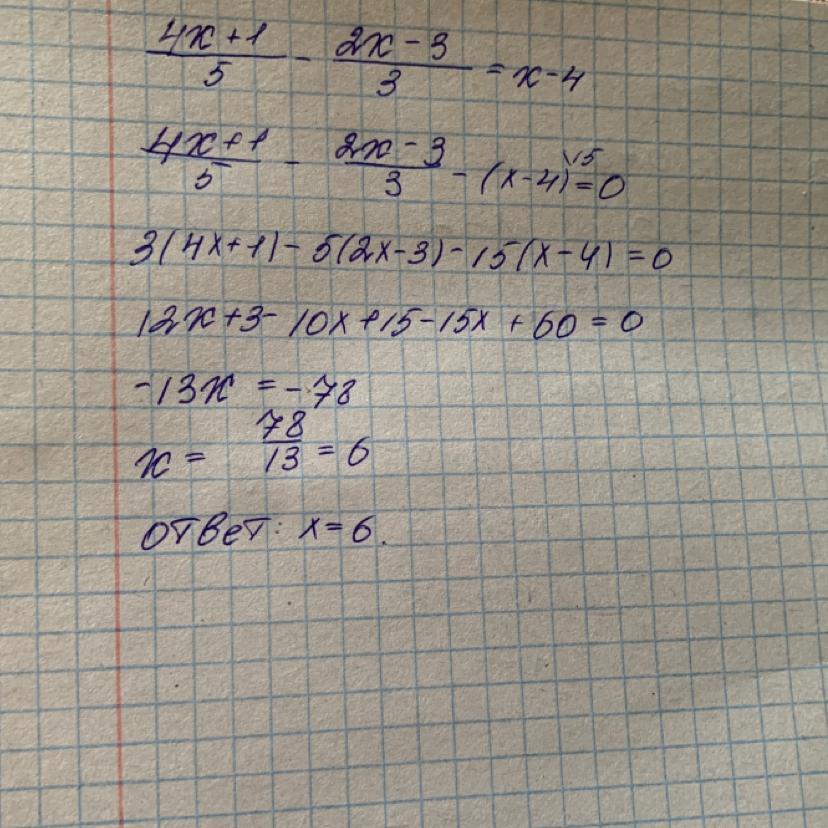 (4x+1)/5 - (2x-3)/3 = x-4
(4x+1)/5 - (2x-3)/3 - (x-4)\15 = 0
3(4x+1) - 5(2x-3) - 15(x-4) = 0
12x+3-10x+15-15x+60=0
-13x = -78
x = 78/13 = 6
ответ: x=6.